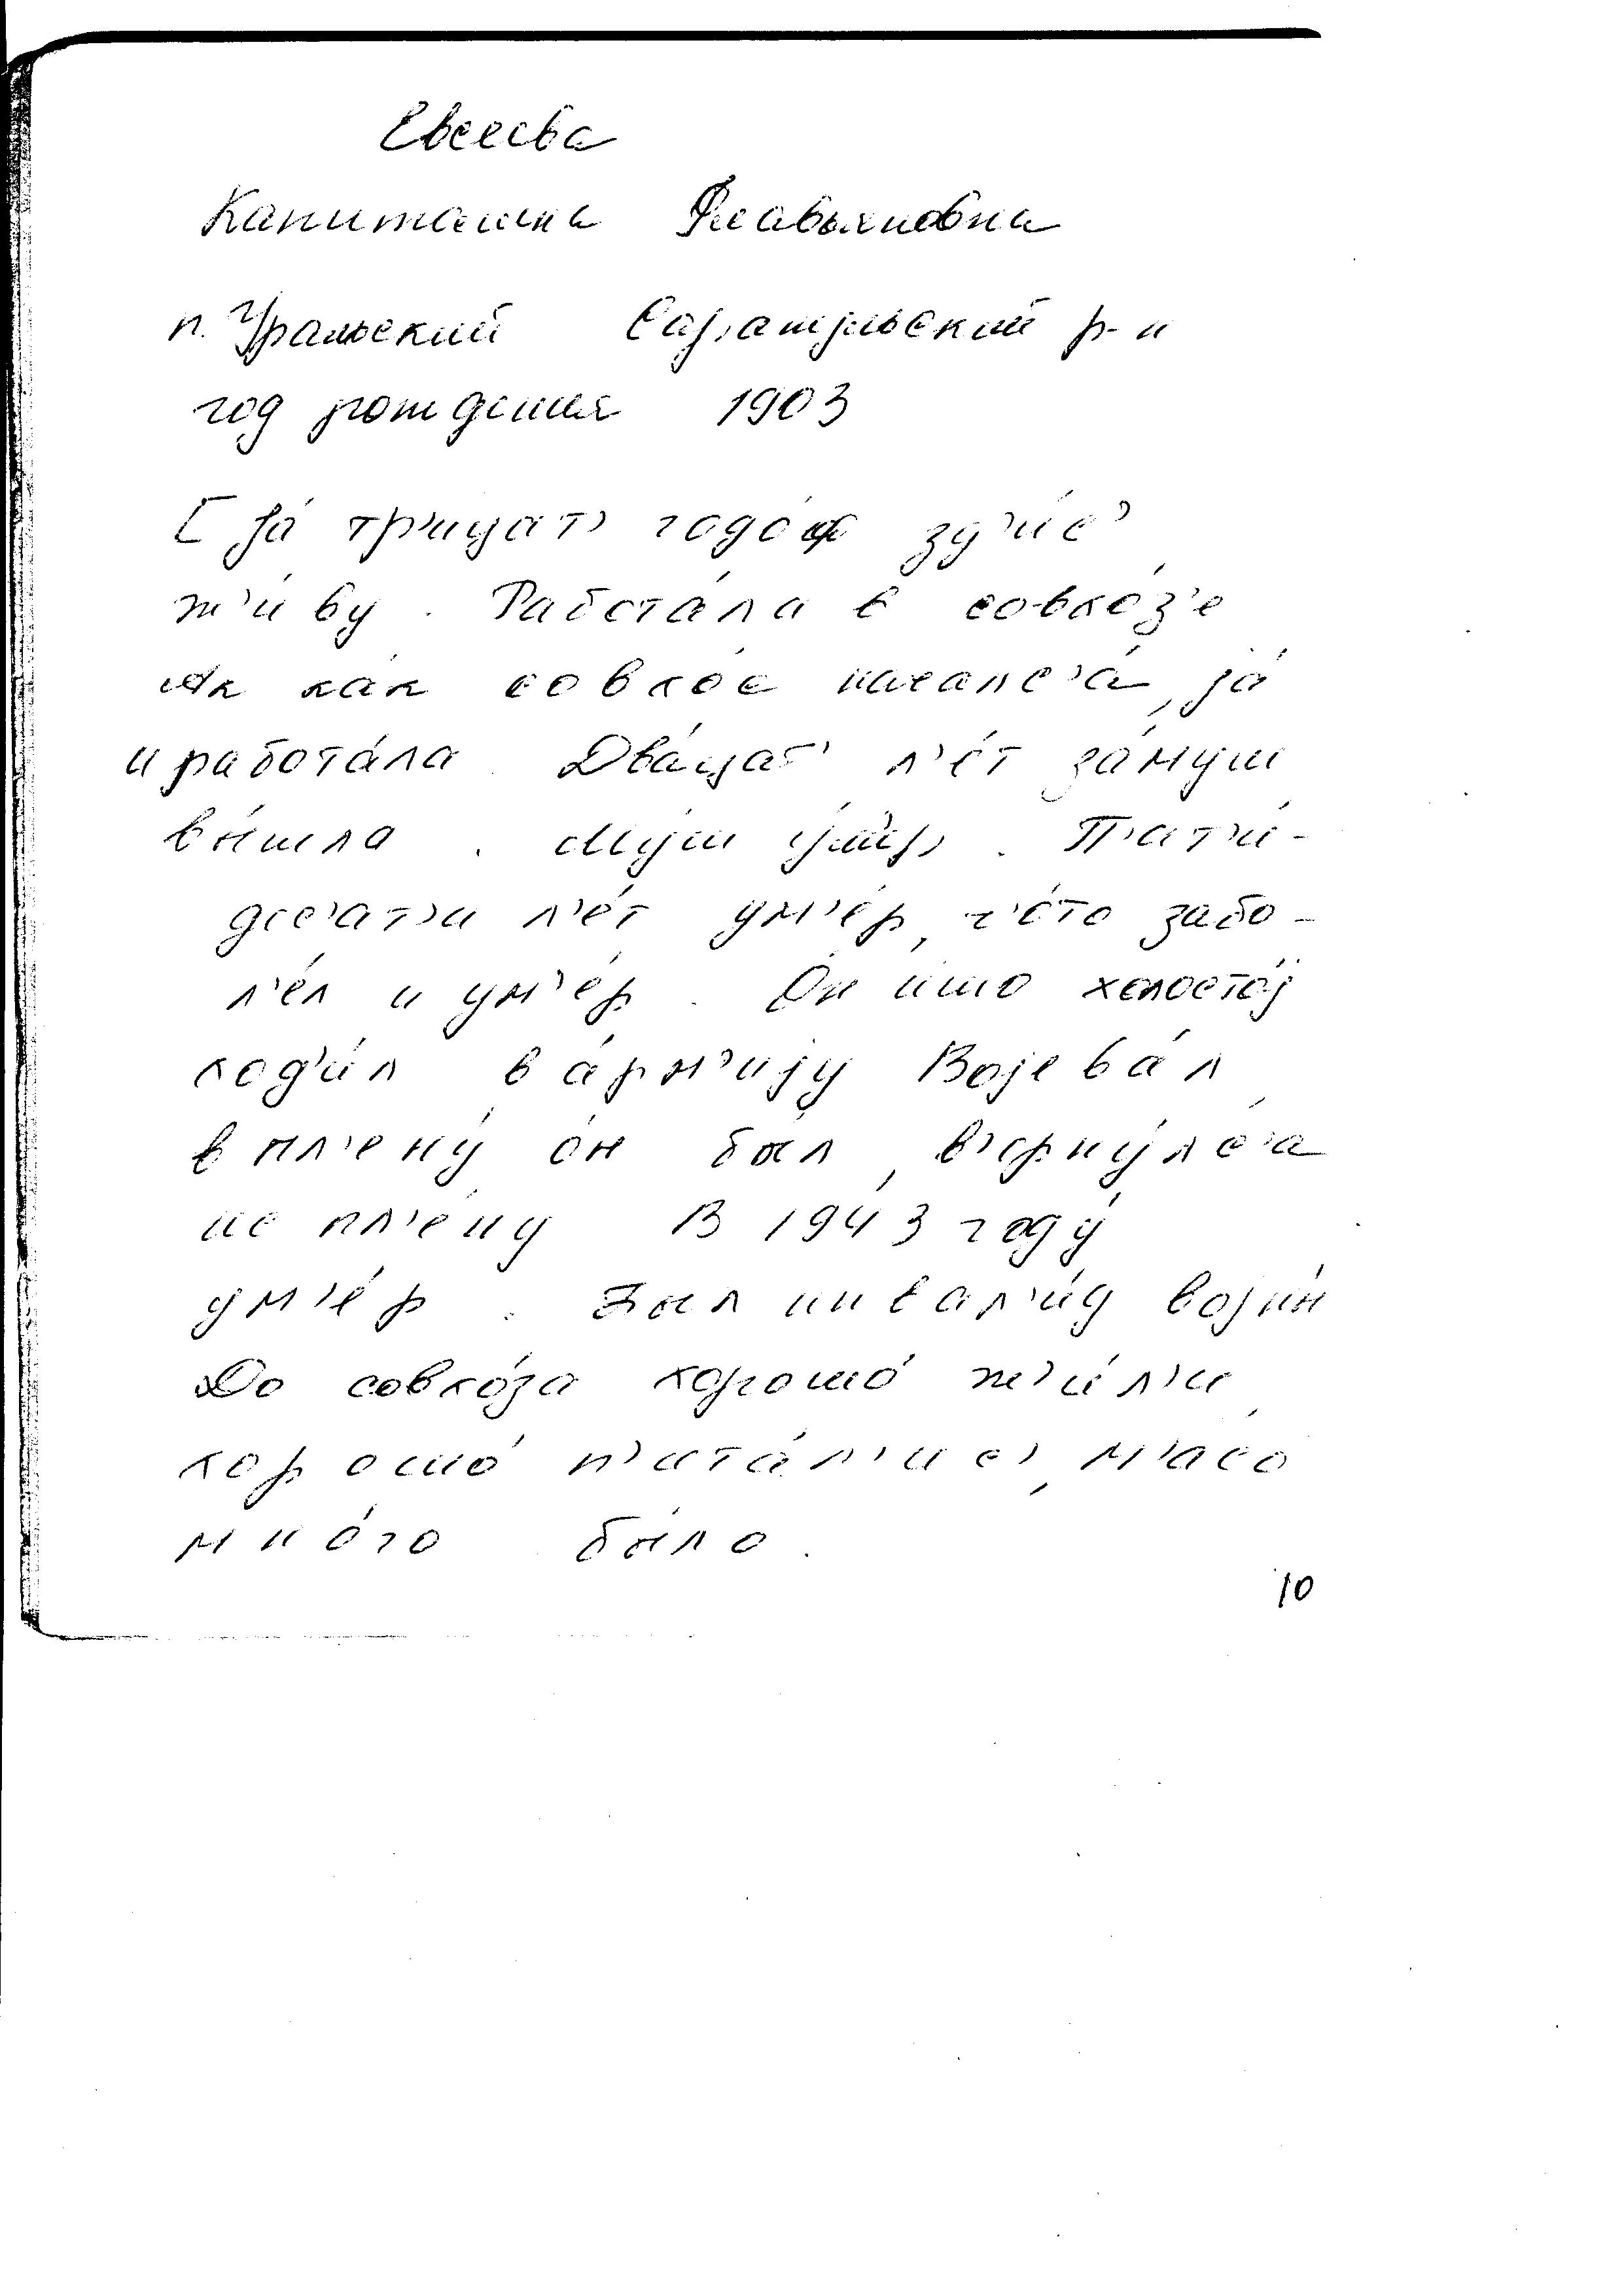 Евсеева
Капиталина
п. Уральский р-н
год рождения 1903
[ја́ тр'ицат' годо́ф зд'и́с'
ж'иву́. Рабо́тала в совхо́з'е
Ак как совхо́с начался́, ја́
и рабо́тала Два́цат' л'е́т за́муш
вы́шла. Му́ш у́м'ьр. П'ат'и-
дес'ат'и л'е́т у́м'ер, ч'е́то забо-
л'е́л и у́м'ер. Он ишо холосто́ј
ход'и́л в а́рм'ију Војева́л,
в пл'ену́ о́н был, в'ерну́лс'а
ис пл'е́ну В 1943 году́
у́м'ер. Был инвал'и́д војны́
До совхо́за хорошо́ ж'и́л'и,
хорошо́ п'ита́л'ис', м'а́со
мно́го бы́ло.
10